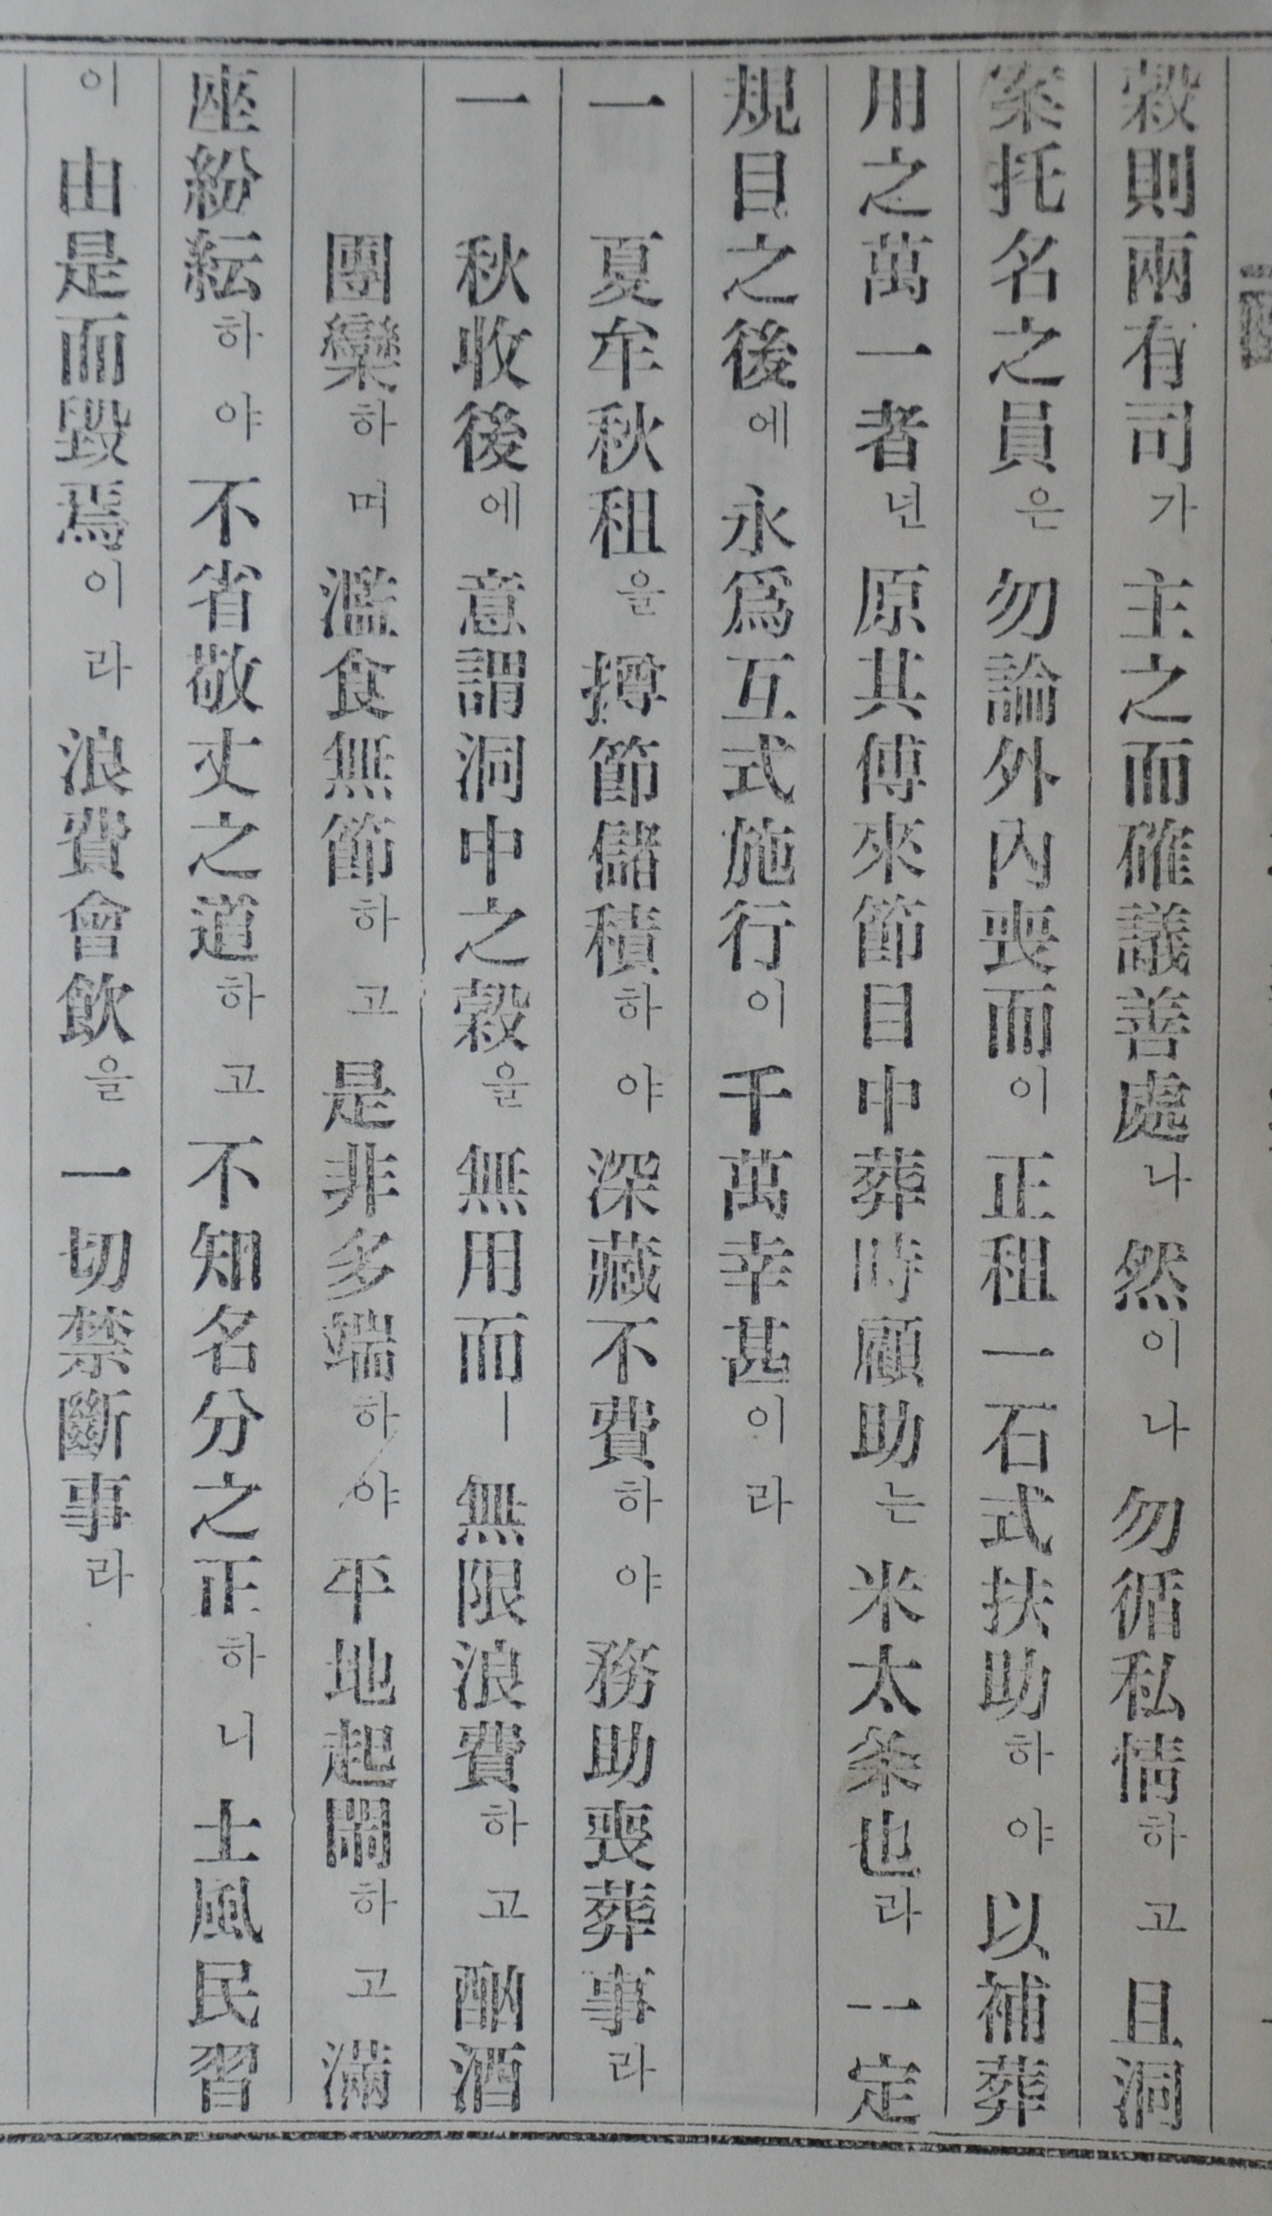 穀則兩有司가主之而確議善處나然이나勿循私情하고且洞
案托名之員은勿論外內喪而이正租一石式扶助하야以補葬
用之萬一者넌原其傳來節目中葬時顧助는米太条也라一定
規目之後에永爲互式施行이千萬幸甚이라
一 夏牟秋租을撙節儲積하야深藏不費하야務助喪葬事라
一 秋收後에意謂洞中之穀을無用而ㅣ無限浪費하고酗酒
團欒하며濫食無節하고是非多端하야平地起鬧하고滿
座紛紜하야不省敬丈之道하고不知名分之正하니士風民習
이由是而毀焉이라浪費會飮을一切禁斷事라